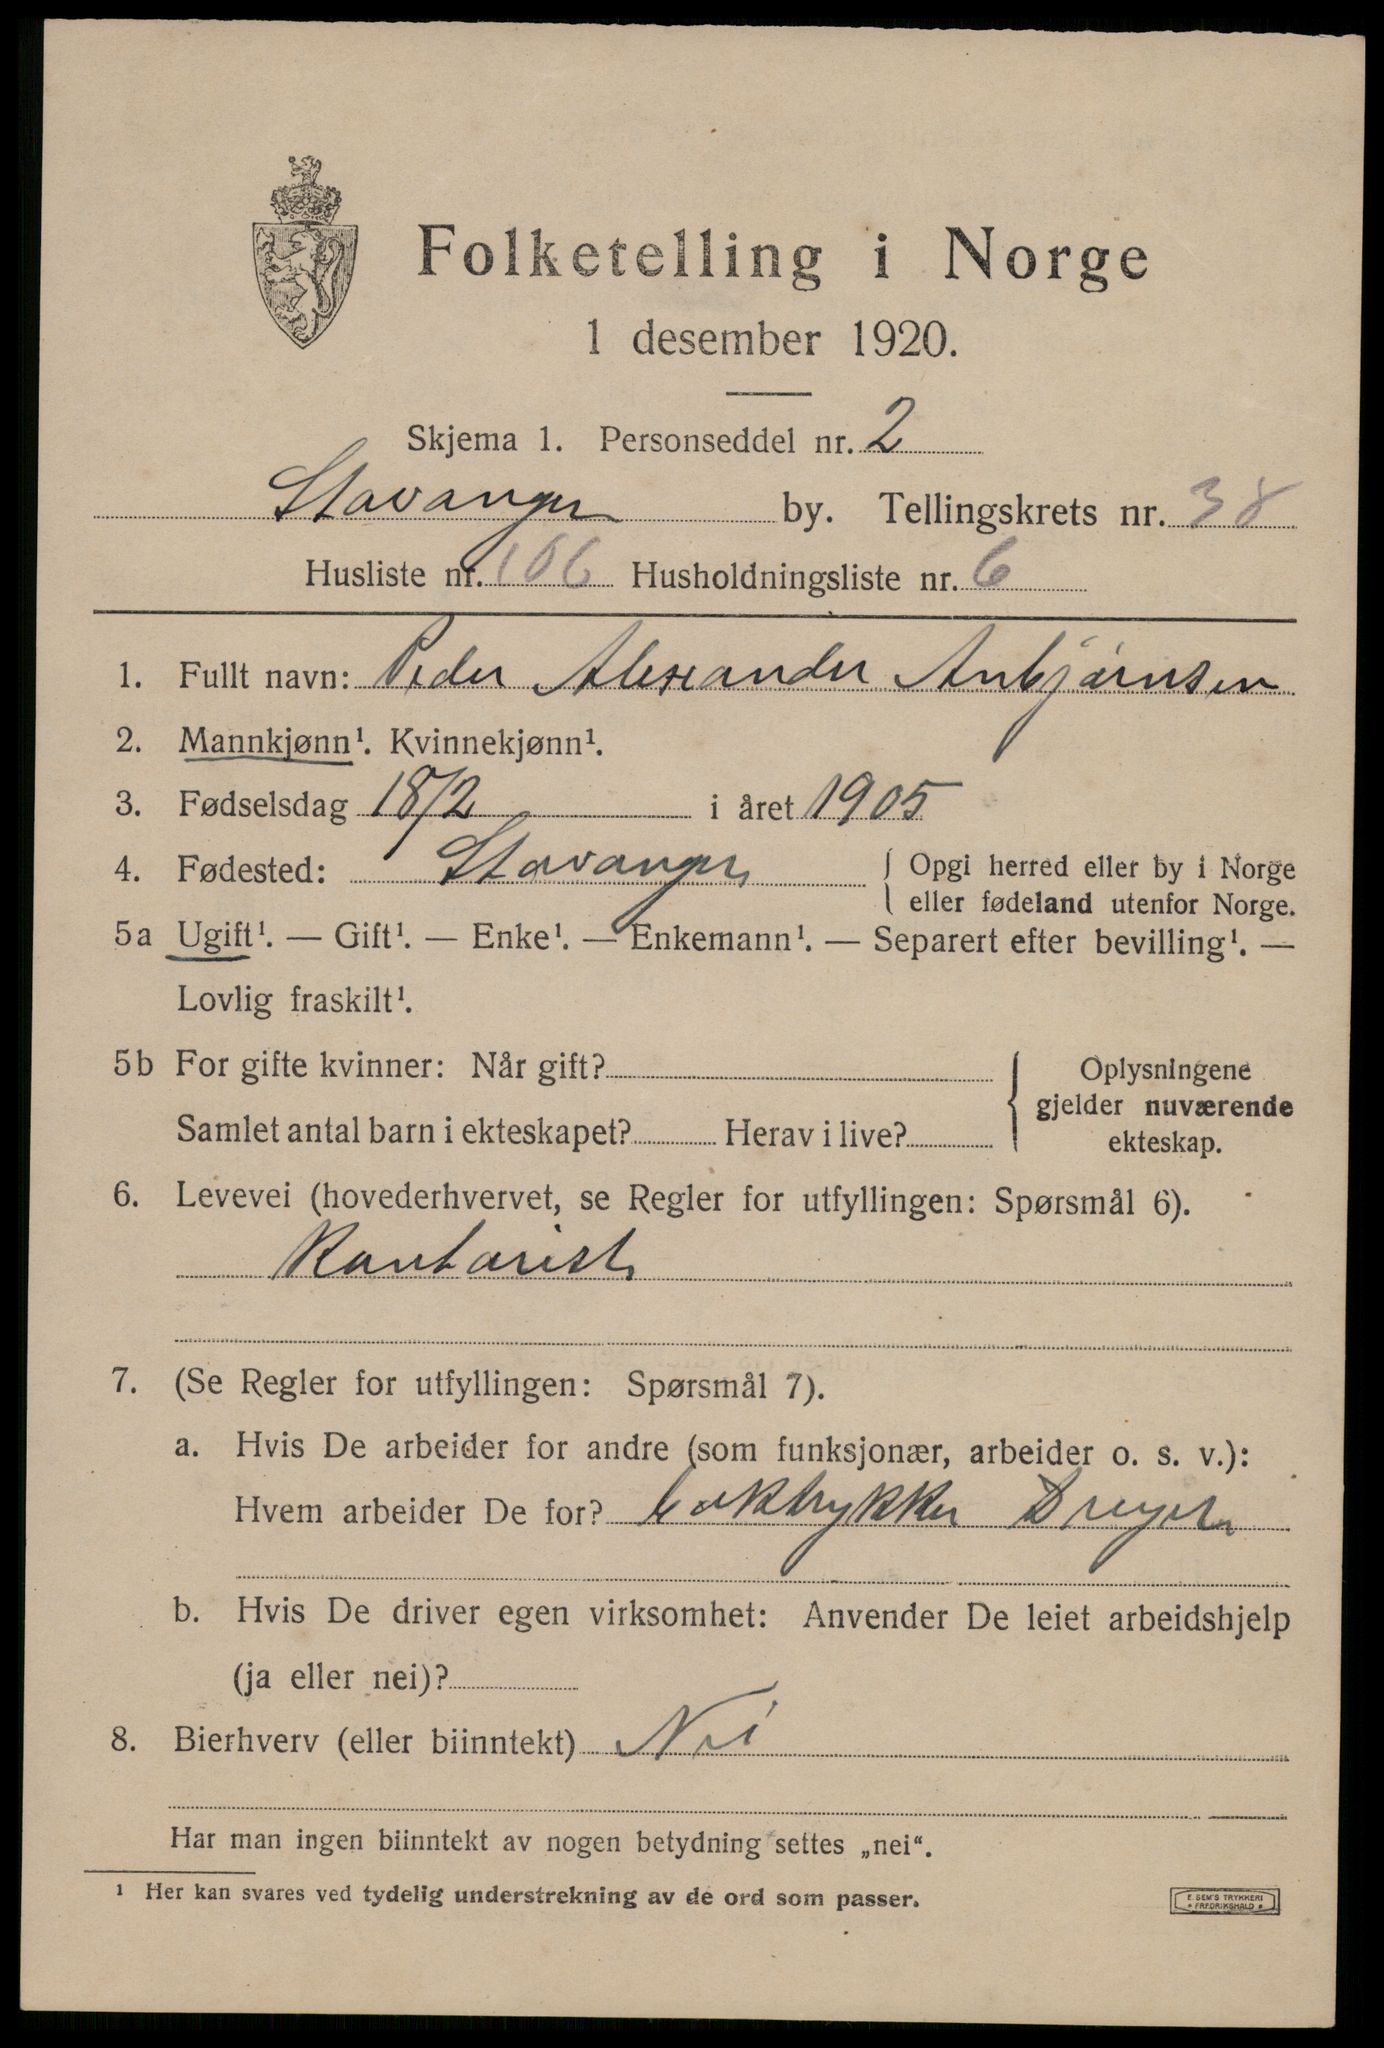 Folketelling i Norge
1 desember 1920.
Skjema 1. Personseddel nr. 2
Stavanger by. Tellingskrets nr. 38
Husliste nr. 166 Husholdningsliste nr. 6
1. Fullt navn: Peder Alexander Anbjørnsen
2. Mannkjønn¹. Kvinnekjønn¹.
3. Fødselsdag 18/2 i året 1905
4. Fødested: Stavanger { Opgi herred eller by i Norge
eller fødeland utenfor Norge.
5a Ugift¹. — Gift¹. — Enke¹. — Enkemann¹. — Separert efter bevilling¹. —
Lovlig fraskilt¹.
5b For gifte kvinner: Når gift?
Samlet antal barn i ekteskapet? Herav i live?
Oplysningene
gjelder nuværende
ekteskap.
6. Levevei (hovederhvervet, se Regler for utfyllingen: Spørsmål 6).
Kontorist
7. (Se Regler for utfyllingen: Spørsmål 7).
a. Hvis De arbeider for andre (som funksjonær, arbeider o. s. v.):
Hvem arbeider De for? boktrykker Dreyer
b. Hvis De driver egen virksomhet: Anvender De leiet arbeidshjelp
(ja eller nei)?
8. Bierhverv (eller biinntekt) Nei
Har man ingen biinntekt av nogen betydning settes „nei“.
¹ Her kan svares ved tydelig understrekning av de ord som passer.
E. SEM'S TRYKKERI
* FREDRIKSHALD *